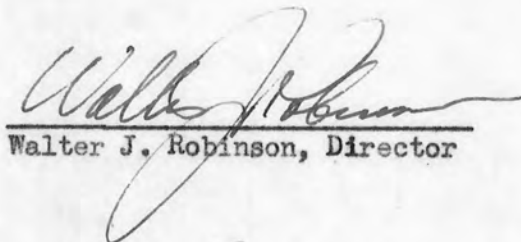 Walter J. Robinson
Walter J. Robinson, Director